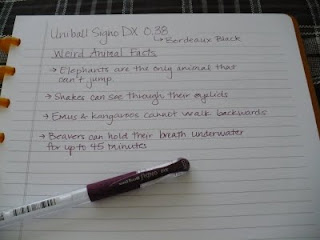 Uniball Signo DX 0.38
→ Bordeaux Black
Weird Animal Facts
→ Elephants are the only animal that
can't jump.
→ Snakes can see through their eyelids
→ Emus & kangaroos cannot walk backwards
→ Beavers can hold their breath underwater
for up to 45 minutes